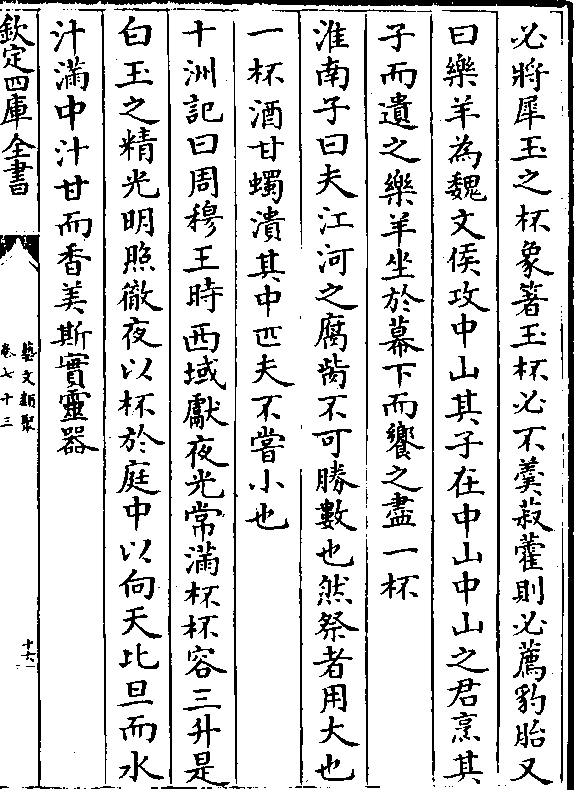 必將犀玉之杯象箸玉杯必不羮菽藿則必薦豹胎又
曰樂羊為魏文侯攻中山其子在中山中山之君烹其
子而遺之樂羊坐於幕下而饗之盡一杯
淮南子曰夫江河之腐胔不可勝數也然祭者用大也
一杯酒甘蠋漬其中匹夫不嘗小也
十洲記曰周穆王時西域獻夜光常滿杯杯容三升是
白玉之精光明照徹夜以杯於庭中以向天比旦而水
汁滿中汁甘而香美斯實靈器
欽定四庫全書
藝文類聚
卷七十三
十六